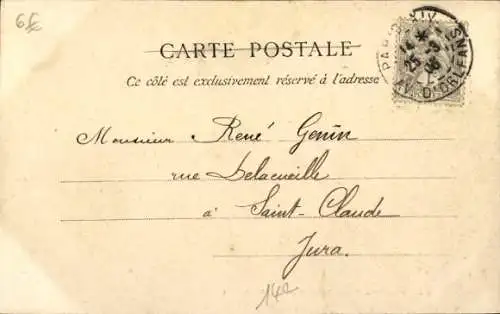 6E
CARTE POSTALE
Ce côté est exclusivement réservé à l'adresse
PARIS XIV
AV. D'ORLEANS
Monsieur René Genin
rue Delacueille
à Saint-Claude
Jura.
140